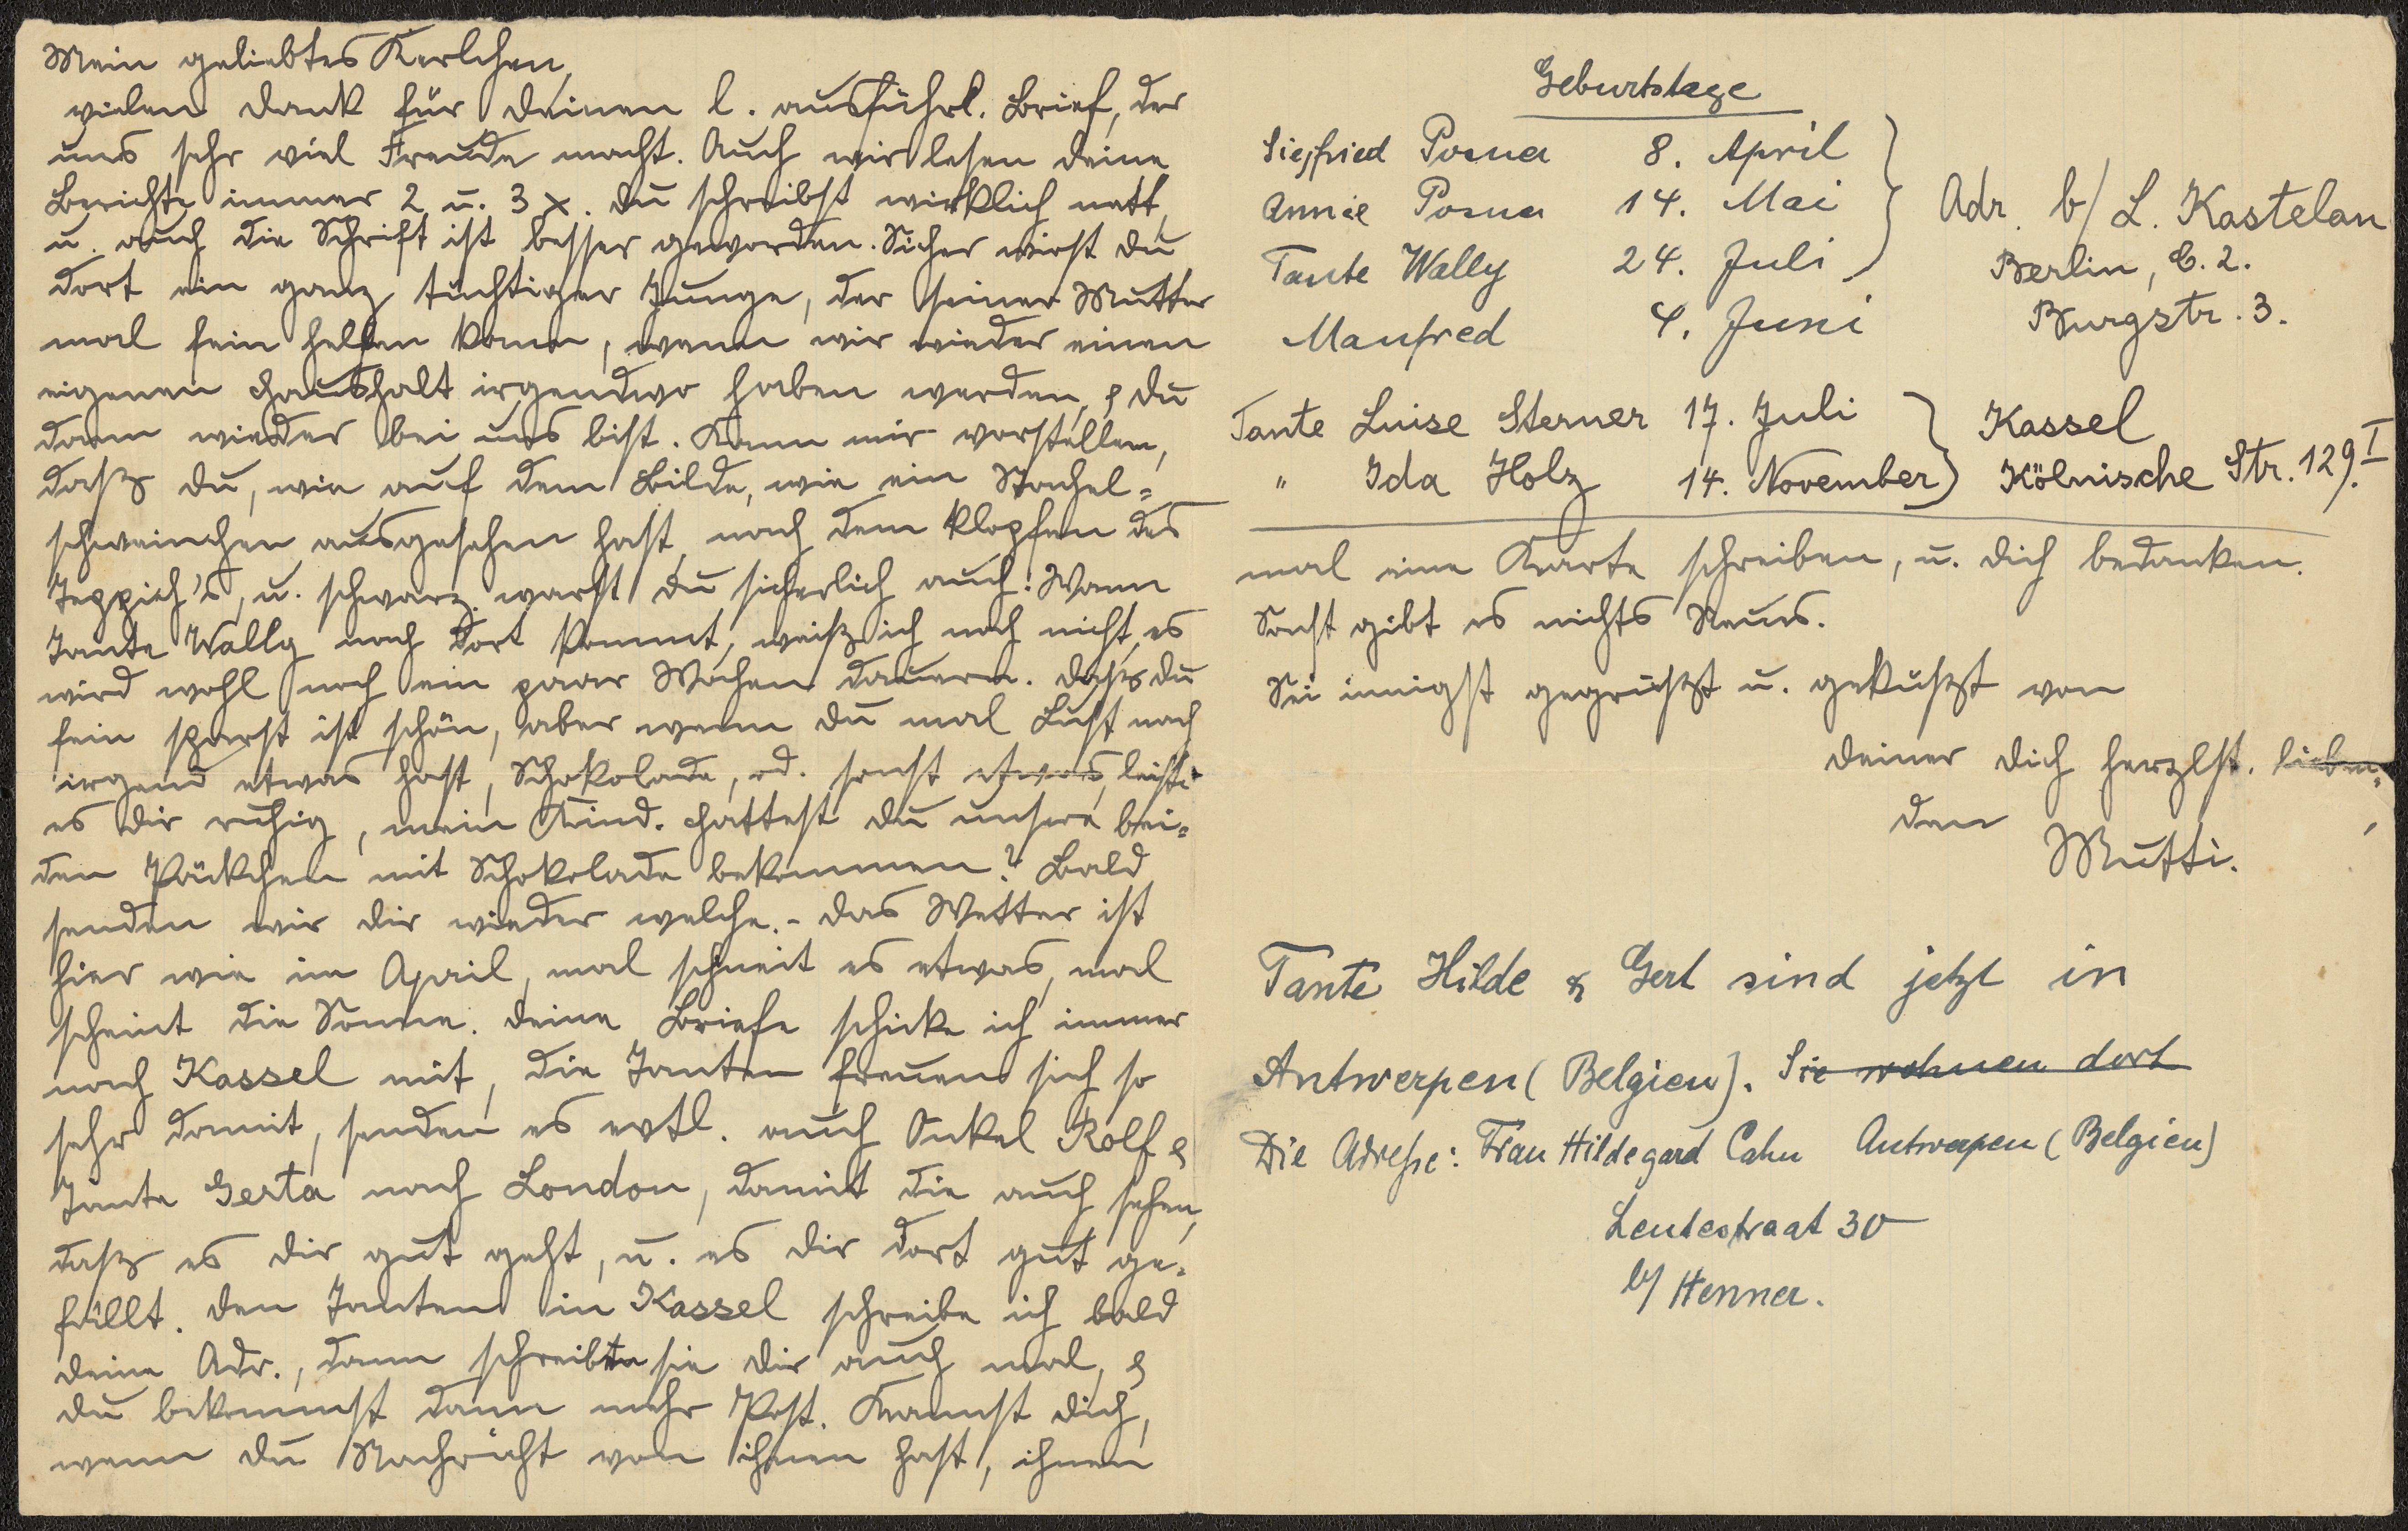 Mein geliebtes Kerlchen,
vielen Dank für Deinen l. ausführl. Brief, der
uns sehr viel Freude macht. Auch wir lesen Deine
Berichte immer 2 u. 3 x. Du schreibst wirklich nett,
u. auch die Schrift ist besser geworden. Sicher wirst Du
dort ein ganz tüchtiger Junge, der seiner Mutter
mal fein helfen kann, wenn wir wieder einen
eigenen Haushalt irgendwo haben werden, & Du
dann wieder bei uns bist. Kann mir vorstellen,
daß Du, wie auf dem Bilde, wie ein Stachel-
schweinchen ausgesehen hast, nach dem klopfen des
Teppich's, u. schwarz warst Du sicherlich auch! Wann
Tante Wally nach dort kommt, weiß ich noch nicht, es
wird wohl noch ein paar Wochen dauern. Daß Du
fein sparst ist schön, aber wenn Du mal Lust nach
irgend etwas hast, Schokolade, od. sonst etwas, leiste
es Dir ruhig, mein Kind. Hattest Du unsere bei-
den Päckchen mit Schokolade bekommen? Bald
senden wir Dir wieder welche. - Das Wetter ist
hier wie im April, mal schneit es etwas, mal
scheint die Sonne. Deine Briefe schicke ich immer
nach Kassel mit, die Tanten freuen sich so
sehr damit, senden es evtl. auch Onkel Rolf &
Tante Gerta nach London, damit die auch sehen,
daß es Dir gut geht, u. es Dir dort gut ge-
fällt. Den Tanten in Kassel schreibe ich bald
Deine Adr., dann schreiben sie Dir auch mal, &
Du bekommst dann mehr Post. Kannst Dich,
wenn Du Nachricht von ihnen hast, ihnen
Geburtstage
Siegfried Posner 8. April
Annie Posner 14. Mai
Tante Wally 24. Juli
Adr. b/ L. Kastelan
Berlin, C. 2.
Burgstr. 3.
Manfred 4. Juni
Tante Luise Sterner 17. Juli
" Ida Holz 14. November
Kassel
Kölnische Str. 129 I.
mal eine Karte schreiben, u. Dich bedanken.
Sonst gibt es nichts Neues.
Sei innigst gegrüßt u. geküßt von
Deiner Dich herzlst. lieben-
den
Mutti.
Tante Hilde & Gert sind jetzt in
Antwerpen (Belgien). Sie wohnen dort
Die Adresse: Frau Hildegard Cahn Antwerpen (Belgien)
Leutestraat 30
b/ Henner.